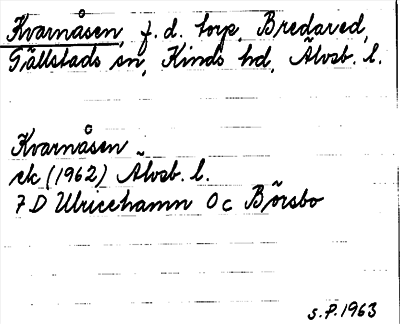 Kvarnåsen, f.d. torp, Bredared,
Gällstads sn, Kinds hd, Älvsb. l.
Kvarnåsen
ek (1962) Älvsb. l.
7 D Ulricehamn 0 c Börsbo
S.P. 1963